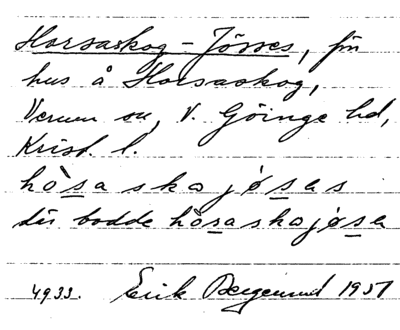 Horsaskog-Jösses, fn
hus å Horsaskog,
Verum sn, V. Göinge hd,
Krist. l.
hòsa sko jøsas
där bodde hòsaskojøsa
4933. Erik Bergemud 1951